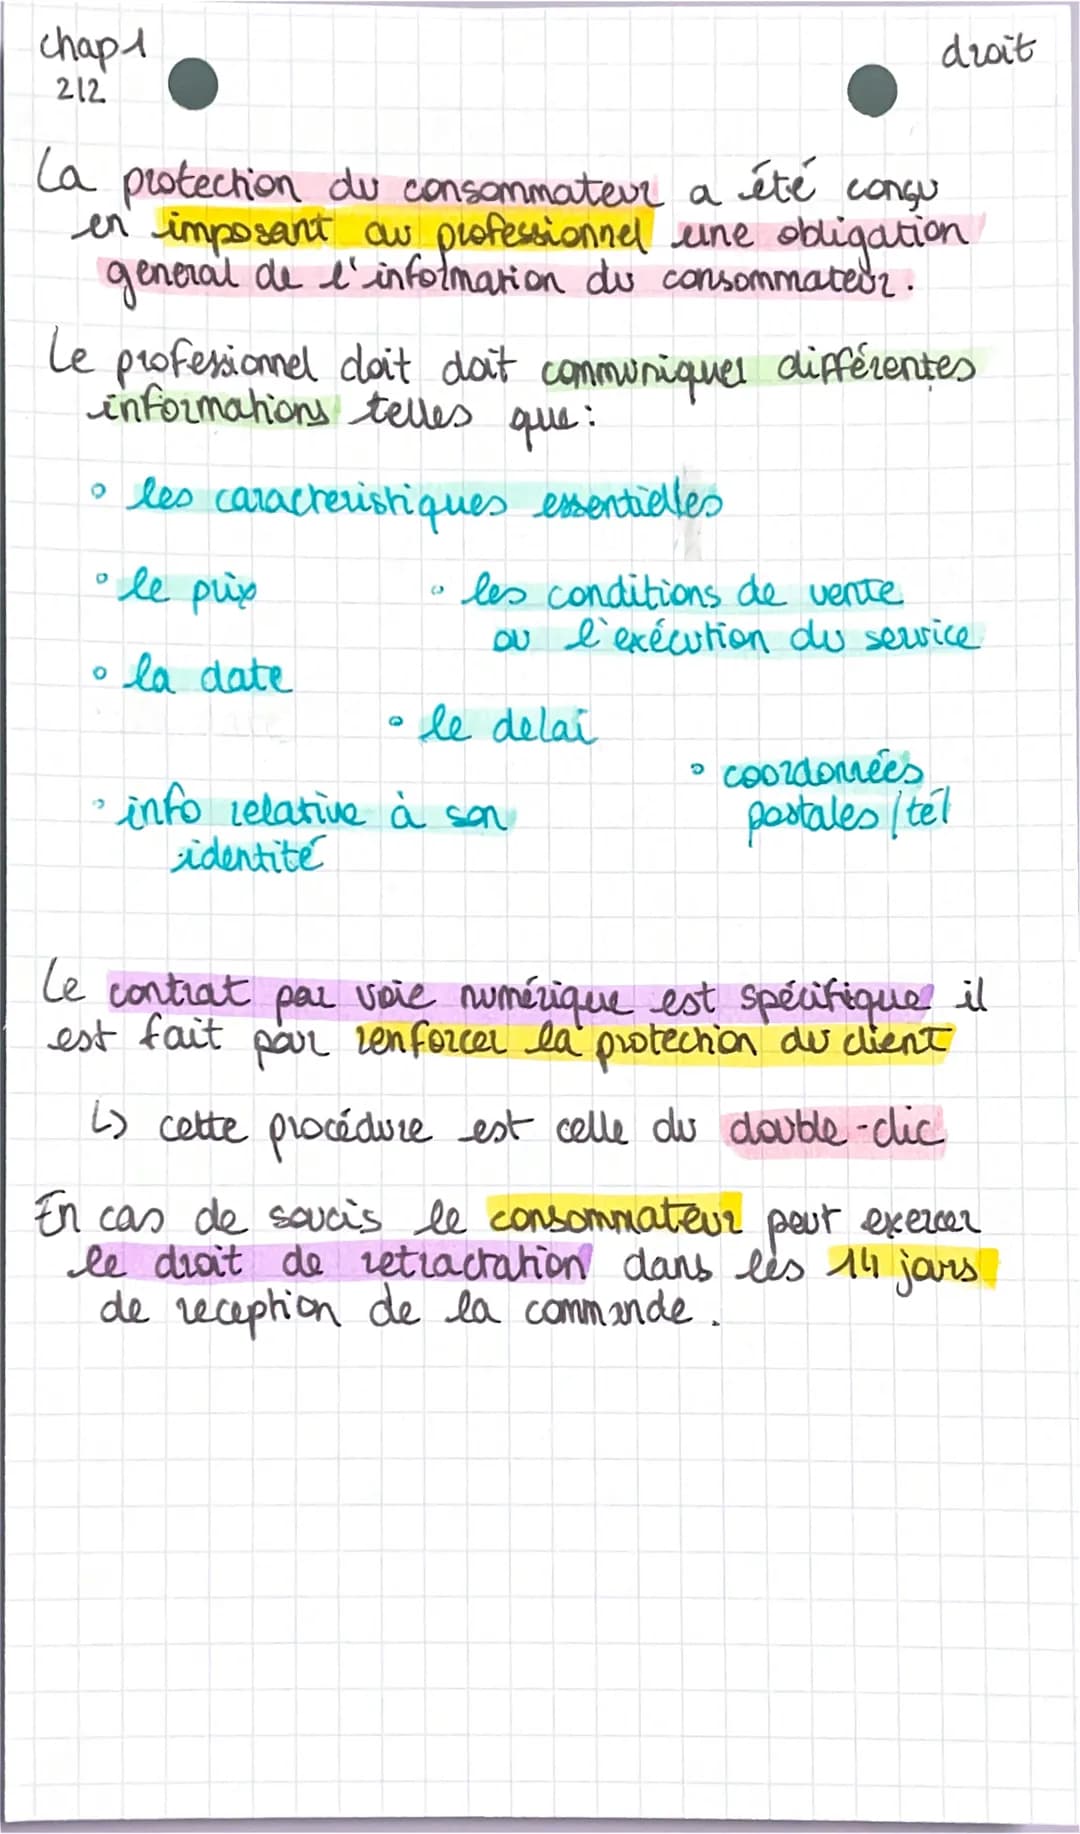 chap1
droit
212
La protection du consommateur a été conçu
en imposant au professionnel une obligation
general de l'information du consommateur.
Le professionnel doit doit communiquer différentes
informations telles que:
◦ les caracteristiques essentielles
◦ le prix
◦ les conditions de vente
ou l'exécution du service
◦ la date
◦ le delai
◦ coordonnées
postales / tél
◦ info relative à son
identité
Le contrat par voie numérique est spécifique il
est fait pour renforcer la protection du client
↳ cette procédure est celle du double-clic
En cas de soucis le consommateur peut exercer
le droit de retractation dans les 14 jours
de reception de la commande.